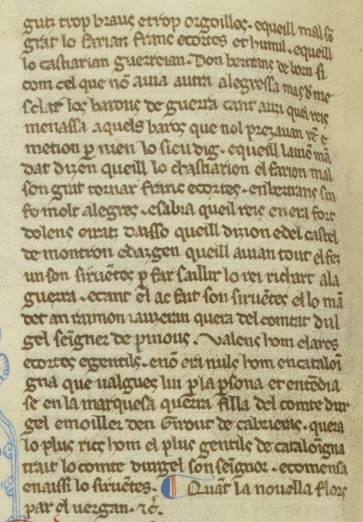 gut trop braus e trop orgoillos. e queill mal so
grat lo farian franc e cortes et humil. e queill
lo castiarian guerreian. Don bertrans de born si
com cel que non auia autra alegressa mas de me
sclar los barons de guerra cant auzi quel reis
menassa aquels baros que nol prezauan re e
metion per nien lo sieu dig. e queill lauion man
dat dizen queill lo chastiarion el farion mal
son grat tornar franc e cortes. en bertrans sin
fo molt alegres. e sabia queil reis en era fort
dolens e iratz daisso queill dizion e del castel
de montron e dargen queill auian tout el fez
un son siruentes per far saillir lo rei richart a la
guerra. e cant el ac fait son siruentes el lo man
det an raimon iauzeran quera del comtat dur
gel seigner de pinous. Valens hom e larcs
e cortes e gentils. e non era nuls hom en cataloi
gna que valgues lui per la persona et entendia
se en la marquesa quera filla del comte dur
gel e moiller den Girout de cabrieras. quera
lo plus rics hom el plus gentils de cataloingna
trait lo comte durgel son seignor. e comensa
en aissi lo siruentes. Quant la nouella flors
par el vergan. etc.